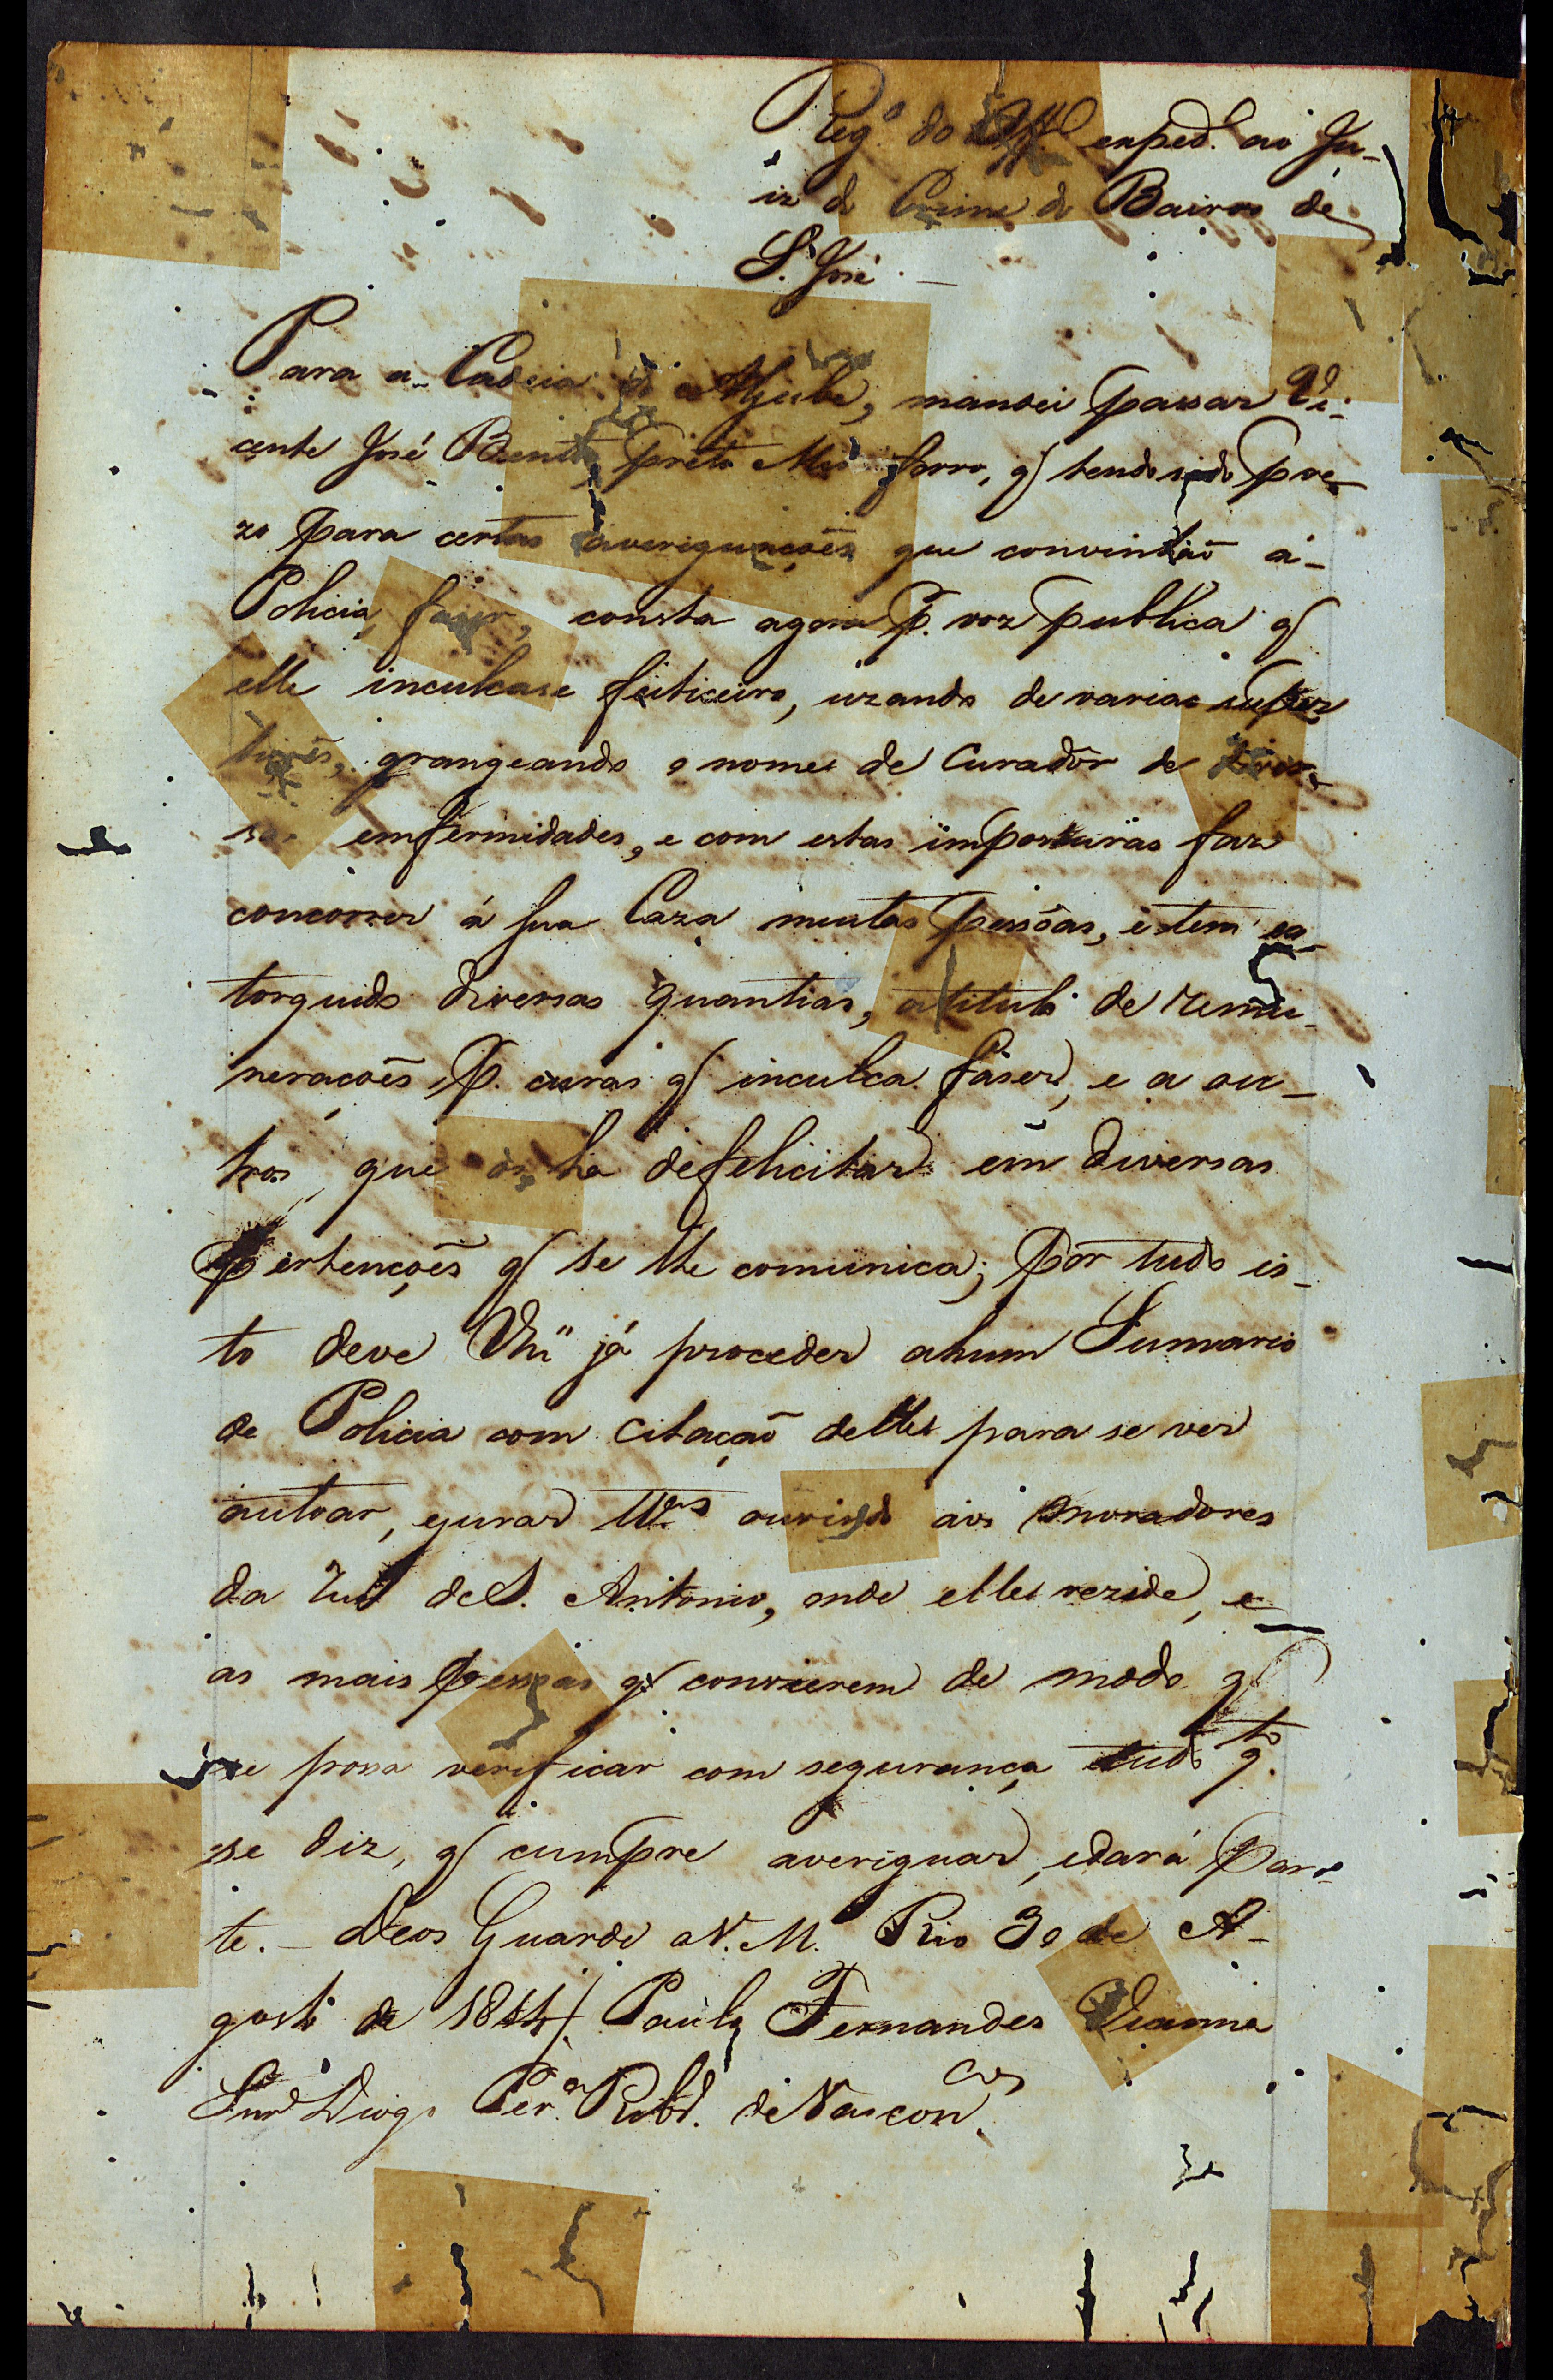 Reg.º do Off.º exped.º ao Ju-
iz do Crime do Bairro de
S. José. —
Para a Cadeia do Aljube, mandei passar Vi-
cente José Bento, preto Mina forro, q̃ tendo sido pre-
zo para certas averiguaçoẽs que convinhaõ á
Policia fazer, consta agora p. voz publica q̃
elle inculcase feiticeiro, uzando de varias super
tiçoẽs, grangeando o nome de Curador de diver-
sas emfermidades, e com estas imposturas faz
concorrer á sua Caza muitas pessôas, e tem es-
torquido diversas quantias, a titulo de remu-
neracoẽs, p. curas q̃ inculca fáser, e a ou-
tros, que os ha defelicitar em diversas
pertençoẽs q̃ se lhe comunica; por tudo is-
to deve Vm.ce já proceder ahum Sumario
de Policia com Citaçaõ delle para se ver
autoar, ejurar tt.as ouvindo aos moradores
da rua de S. Antonio, onde elle rezide, e
as mais pessoas q̃ convierem de modo q̃
se possa verificar com segurança tudo q.to
se diz, q̃ cumpre averiguar, edará par-
te. — Deos Guarde a V. M. Rio 30 de A-
gosto de 1814 /. Paulo Fernandes Vianna
Snr. Diogo Per.ª Ribr.º de Vascon.cos